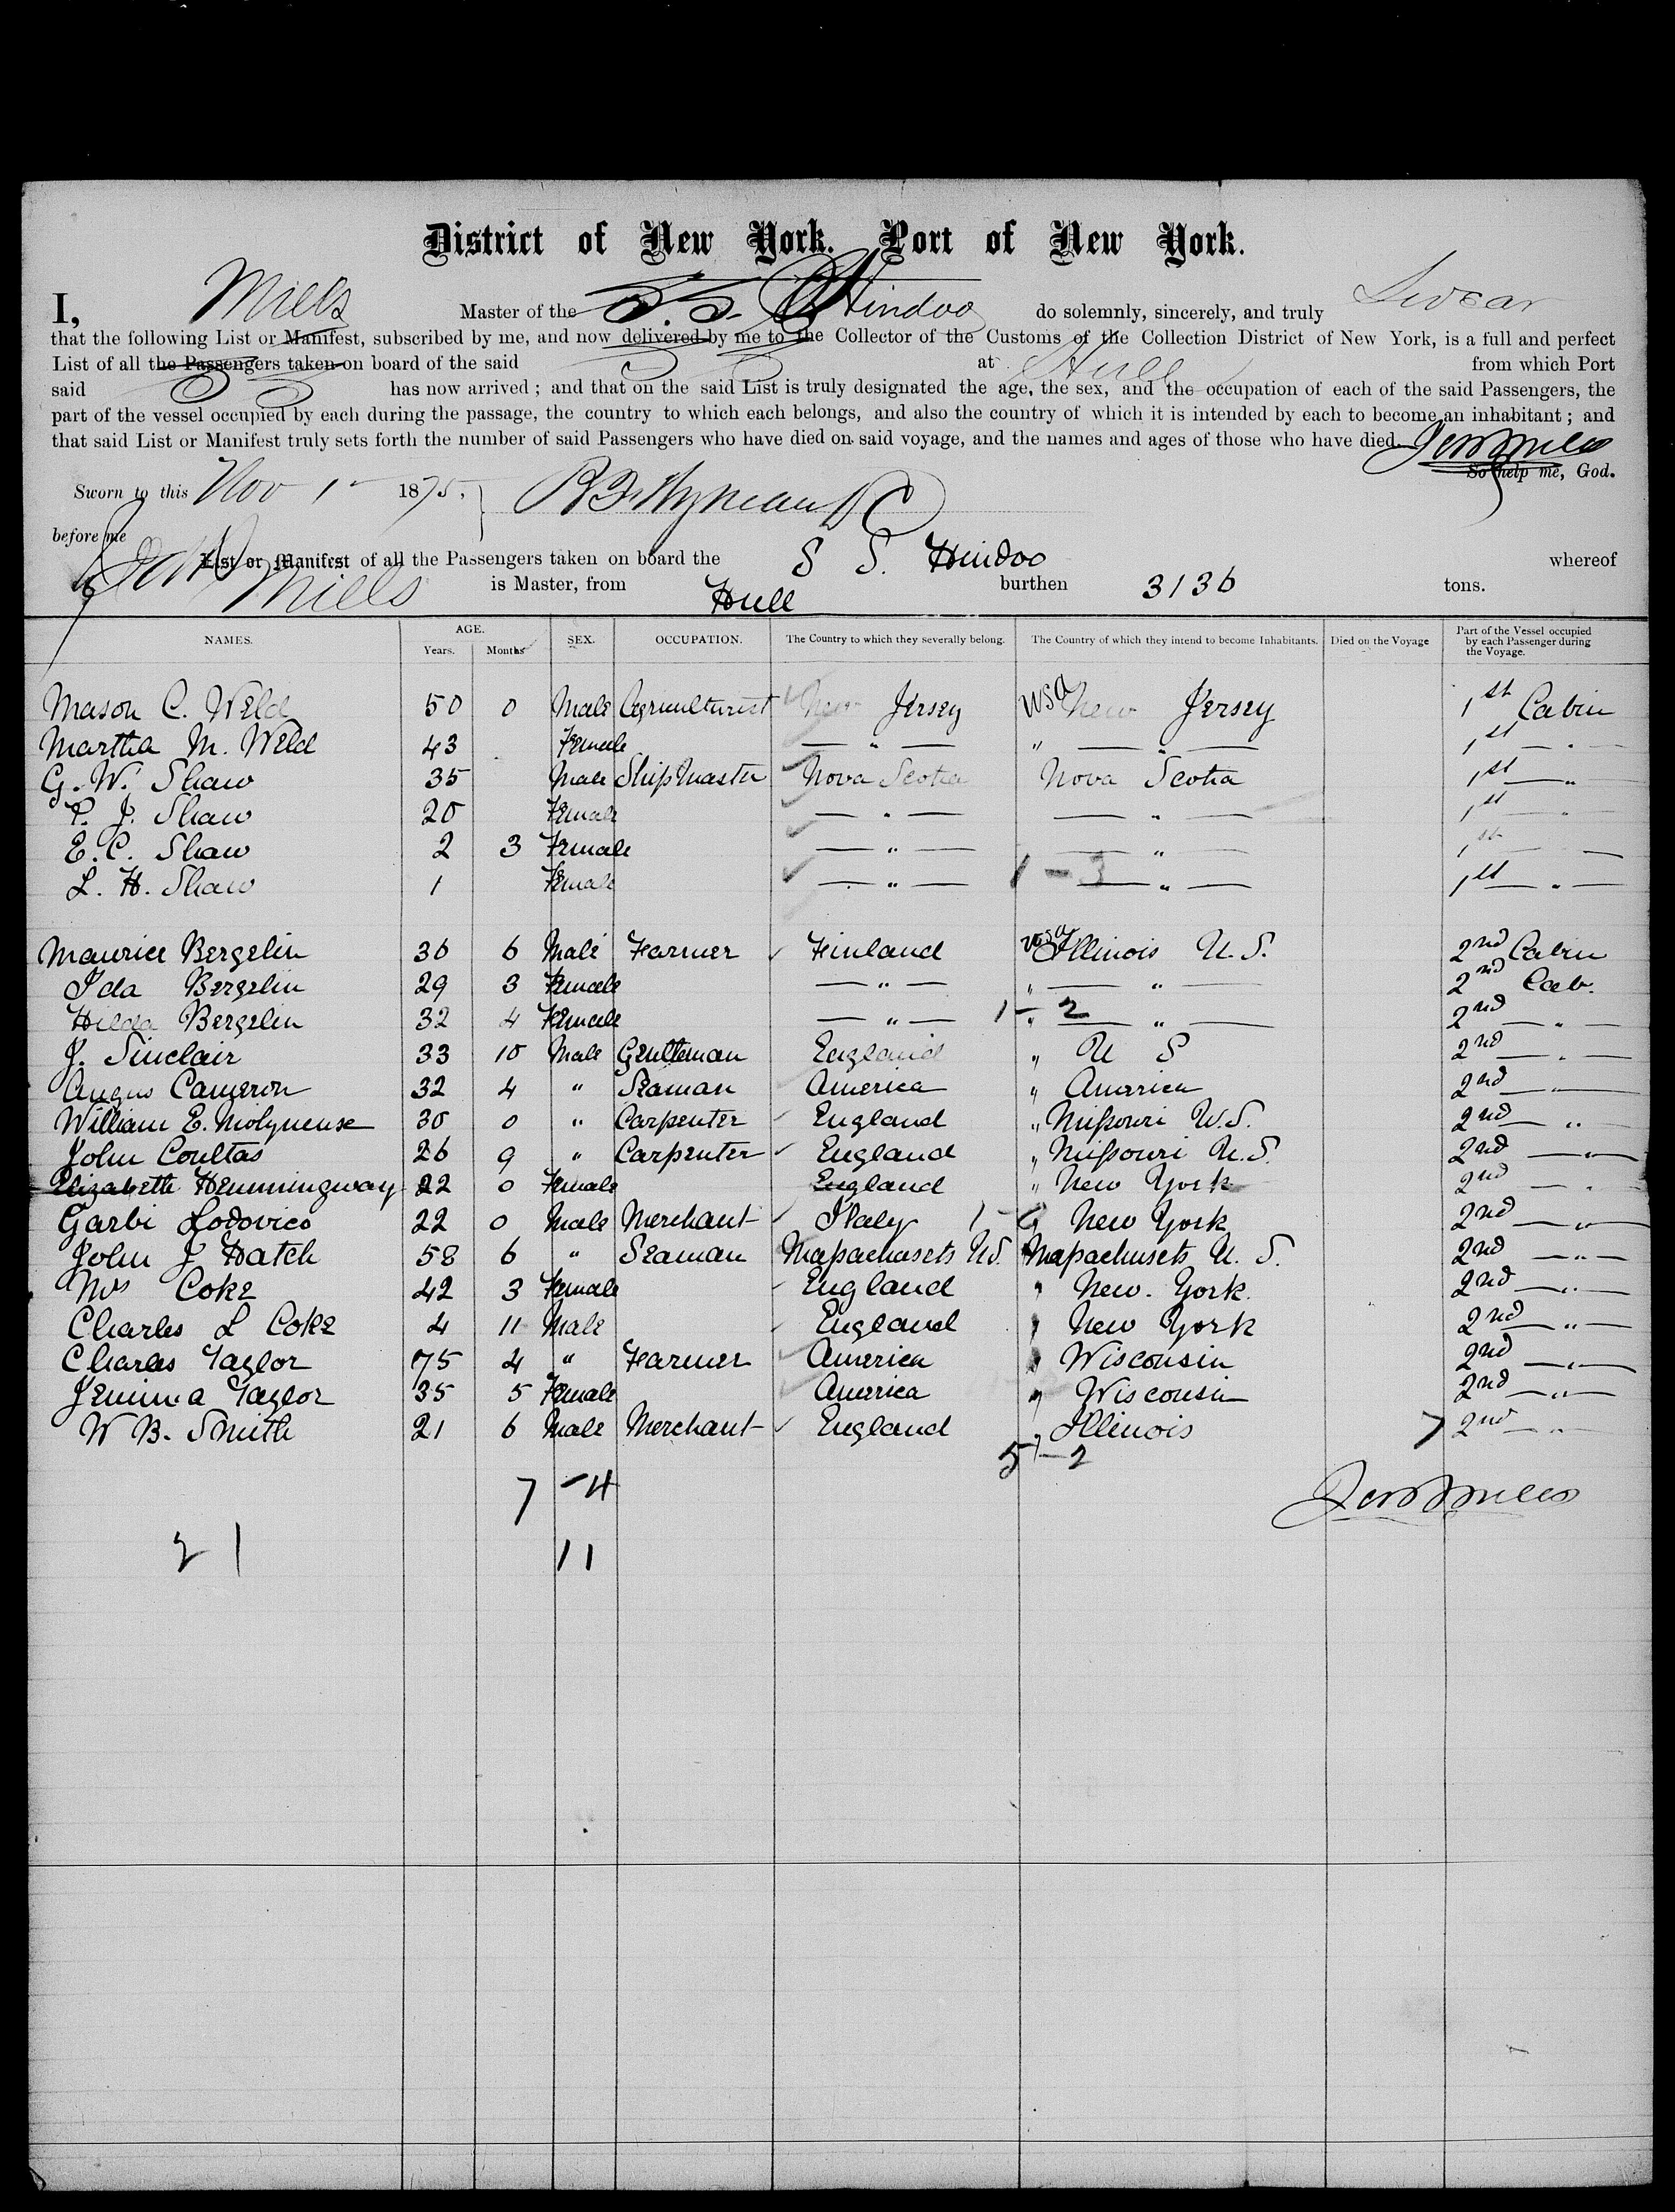 District of New York. Port of New York.
I, Mills Master of the S.S. Hindoo do solemnly, sincerely, and truly Swear
that the following List or Manifest, subscribed by me, and now delivered by me to the Collector of the Customs of the Collection District of New York, is a full and perfect
List of all the Passengers taken on board of the said SS at Hull from which Port
said SS has now arrived; and that on the said List is truly designated the age, the sex, and the occupation of each of the said Passengers, the
part of the vessel occupied by each during the passage, the country to which each belongs, and also the country of which it is intended by each to become an inhabitant; and
that said List or Manifest truly sets forth the number of said Passengers who have died on said voyage, and the names and ages of those who have died. Mills
So help me, God.
Sworn to this Nov 1 1875,
before me
List or Manifest of all the Passengers taken on board the S S. Hindoo whereof
Mills is Master, from Hull burthen 3136 tons.
NAMES. AGE. Years. Months SEX. OCCUPATION. The Country to which they severally belong. The Country of which they intend to become Inhabitants. Died on the Voyage Part of the Vessel occupied by each Passenger during the Voyage.
Mason C. Weld 50 0 Male Agriculturist New Jersey USA New Jersey 1st Cabin
Martha M. Weld 43 Female — " — " — " — 1st — " —
G. W. Shaw 35 Male Ship Master Nova Scotia Nova Scotia 1st — "
P. J. Shaw 20 Female — " — — " — 1st — " —
E. C. Shaw 2 3 Female — " — — " — 1st — —
L. H. Shaw 1 Female — " — 1 - 3 — " — 1st — " —
Maurice Bergelin 36 6 Male Farmer Finland USA Illinois U.S. 2nd Cabin
Ida Bergelin 29 3 Female — " — " — " — 2nd Cab.
Hilda Bergelin 32 4 Female — " — 1 - 2 " — " — 2nd — " —
J. Sinclair 33 10 Male Gentleman England " U S 2nd — " —
Angus Cameron 32 4 " Seaman America " America 2nd — " —
William E. Molyneuse 30 0 " Carpenter England " Missouri U.S. 2nd — " —
John Coultas 26 9 " Carpenter England " Missouri U.S. 2nd — " —
Elizabeth Hemmingway 22 0 Female England " New York 2nd — " —
Garbi Lodovico 22 0 Male Merchant Italy 1 - " New York 2nd — " —
John J Hatch 58 6 " Seaman Massachusets US. Massachusets U. S. 2nd — " —
Mrs Coke 42 3 Female England " New. York. 2nd — " —
Charles L Coke 4 11 Male England " New York 2nd — " —
Charles Taylor 75 4 " Farmer America " Wisconsin 2nd — " —
Jemima Taylor 35 5 Female America " Wisconsin 2nd — " —
W B. Smith 21 6 Male Merchant England " Illinois 7 2nd — " —
5 - 2
7 - 4 Mills
21 11